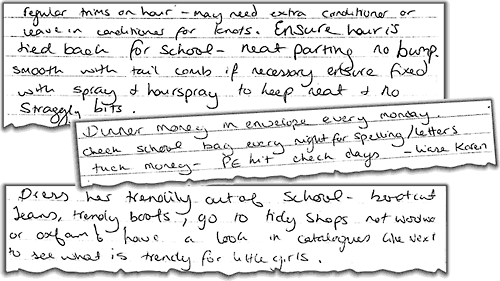 regular trims on hair - may need extra conditioner or
leave in conditioner for knots. Ensure hair is
tied back for school - neat parting no bump.
smooth with tail comb if necessary ensure fixed
with spray & hairspray to keep neat & no
straggly bits.
Dinner money in envelope every monday.
check school bag every night for spelling/letters
tuck money - PE kit check days - liase Karen
Dress her trendily out of school - bootcut
Jeans, trendy boots, go to tidy shops not
or oxfam & have a look in catalogues like Next
to see what is trendy for little girls.